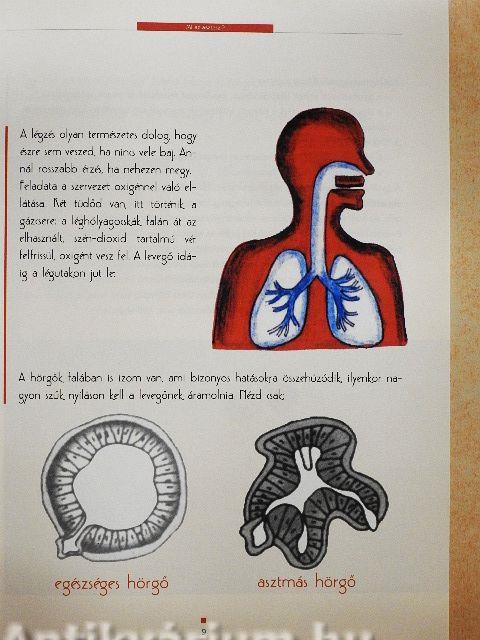 Mi az asztma?
A légzés olyan természetes dolog, hogy
észre sem veszed, ha nincs vele baj. An-
nál rosszabb érzés, ha nehezen megy.
Feladata a szervezet oxigénnel való el-
látása. Két tüdőd van, itt történik a
gázcsere: a léghólyagocskák falán át az
elhasznált, szén-dioxid tartalmú vér
felfrissül, oxigént vesz fel. A levegő idá-
ig a légutakon jut le.
A hörgők falában is izom van, ami bizonyos hatásokra összehúzódik, ilyenkor na-
gyon szűk nyíláson kell a levegőnek áramolnia. Nézd csak:
egészséges hörgő
asztmás hörgő
9
Antikvárium.hu